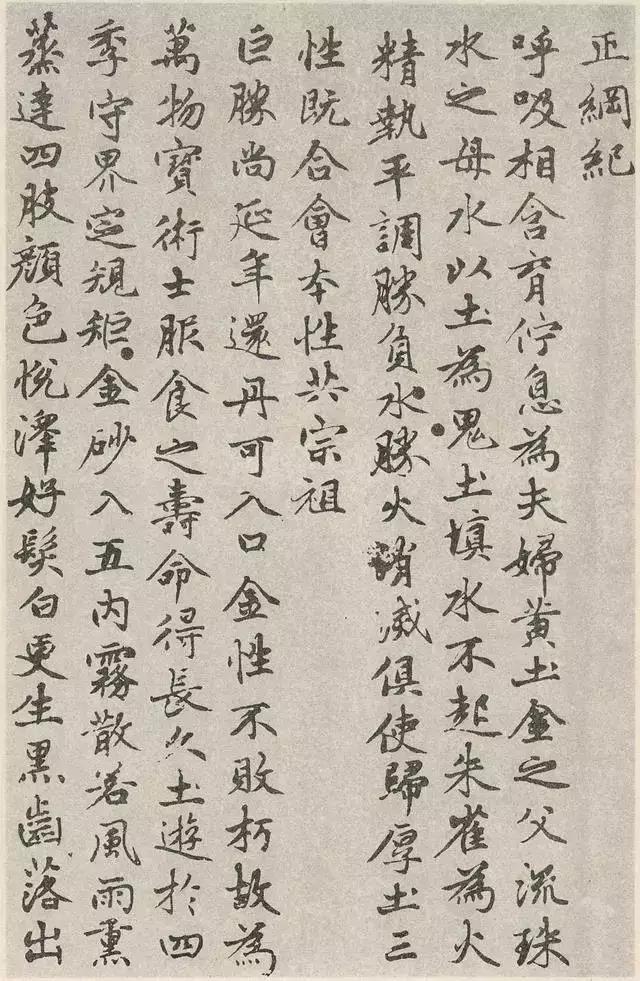 正綱紀
呼吸相含育佇息為夫婦黃土金之父流珠
水之母水以土為鬼土填水不起朱雀為火
精執平調勝負水勝火消滅俱使歸厚土三
性既合會本性共宗祖
巨勝尚延年還丹可入口金性不敗朽故為
萬物寶術士服食之壽命得長久土遊於四
季守界定規矩金砂入五內霧散若風雨熏
蒸達四肢顏色悅澤好髮白更生黑齒落出